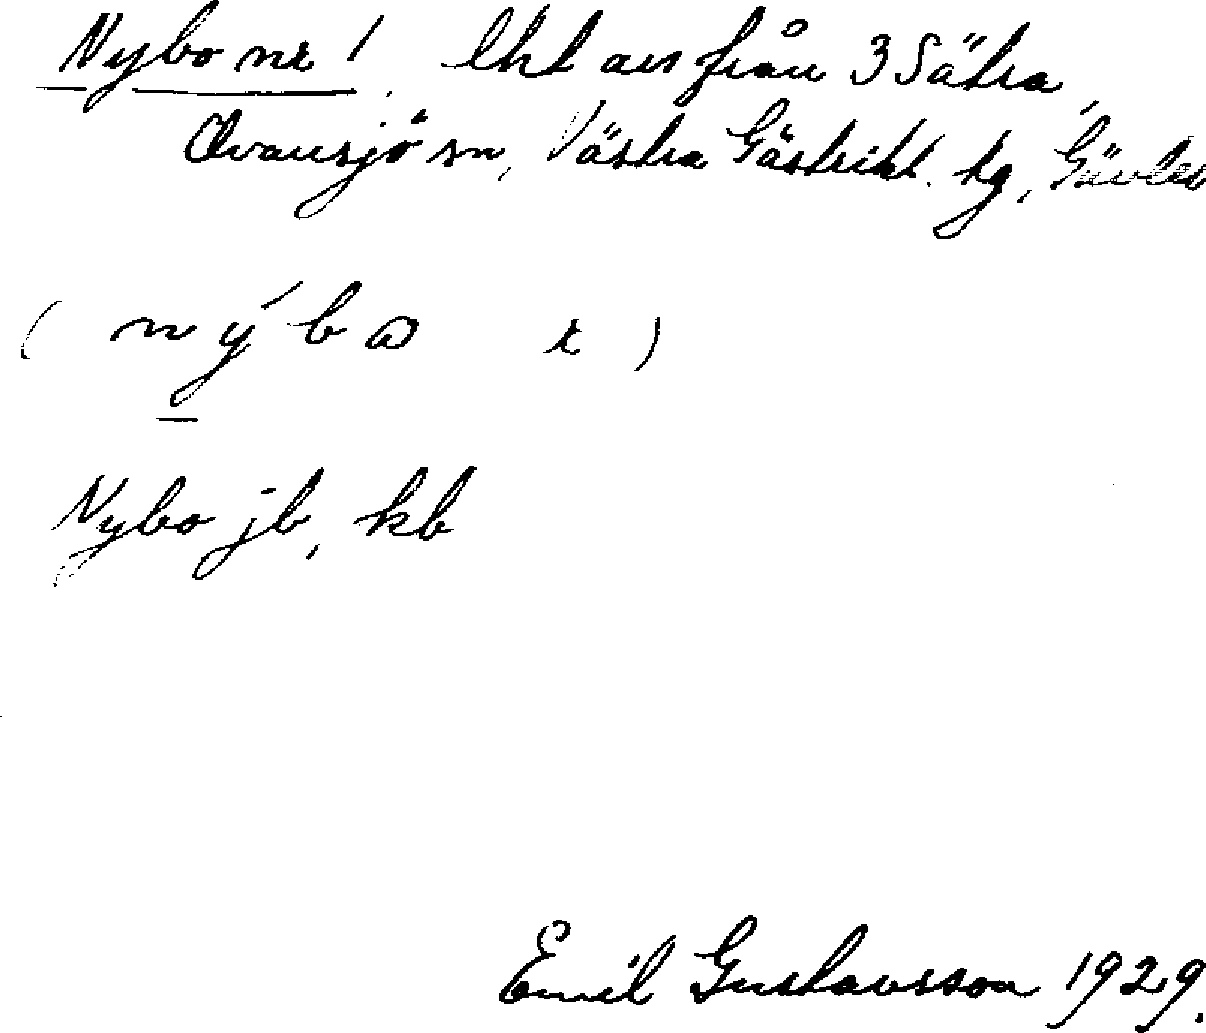 Nybo nr 1. lht avs från 3 Sätra,
Ovansjö sn, Västra Gästrikl. tg, Gävleb
( nýbω ɩ )
Nybo jb, kb
Emil Gustavsson 1929.